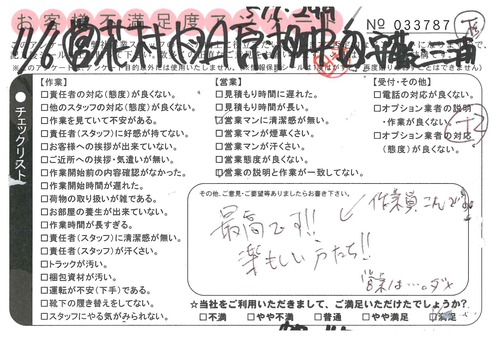 お客様不満足度
№ 033787
チェックリスト
【作業】
□責任者の対応(態度)が良くない。
□他のスタッフの対応(態度)が良くない。
□作業を見ていて不安がある。
□責任者(スタッフ)に好感が持てない。
□お客様への挨拶が出来ていない。
□ご近所への挨拶・気遣いが無い。
□作業開始前の内容確認がなかった。
□作業開始時間が遅れた。
□荷物の取り扱いが雑である。
□お部屋の養生が出来ていない。
□作業時間が長すぎる。
□責任者(スタッフ)に清潔感が無い。
□責任者(スタッフ)が汗くさい。
□トラックが汚い。
□梱包資材が汚い。
□運転が不安(下手)である。
□靴下の履き替えをしてない。
□スタッフにやる気がみられない。
【営業】
□見積もり時間に遅れた。
□見積もり時間が長い。
□営業マンに清潔感が無い。
□営業マンが煙草くさい。
□営業マンが汗くさい。
□営業態度が良くない。
□営業の説明と作業が一致してない。
【受付・その他】
□電話の対応が良くない。
□オプション業者の説明
・作業が良くない。
□オプション業者の対応
(態度)が良くない。
その他、ご意見・ご要望等ありましたらお書き下さい。
作業員さんです
最高です!!
楽しい方たち!!
営業は…。ダメ
☆当社をご利用いただきまして、ご満足いただけたでしょうか?
□不満 □やや不満 □普通 □やや満足 □満足